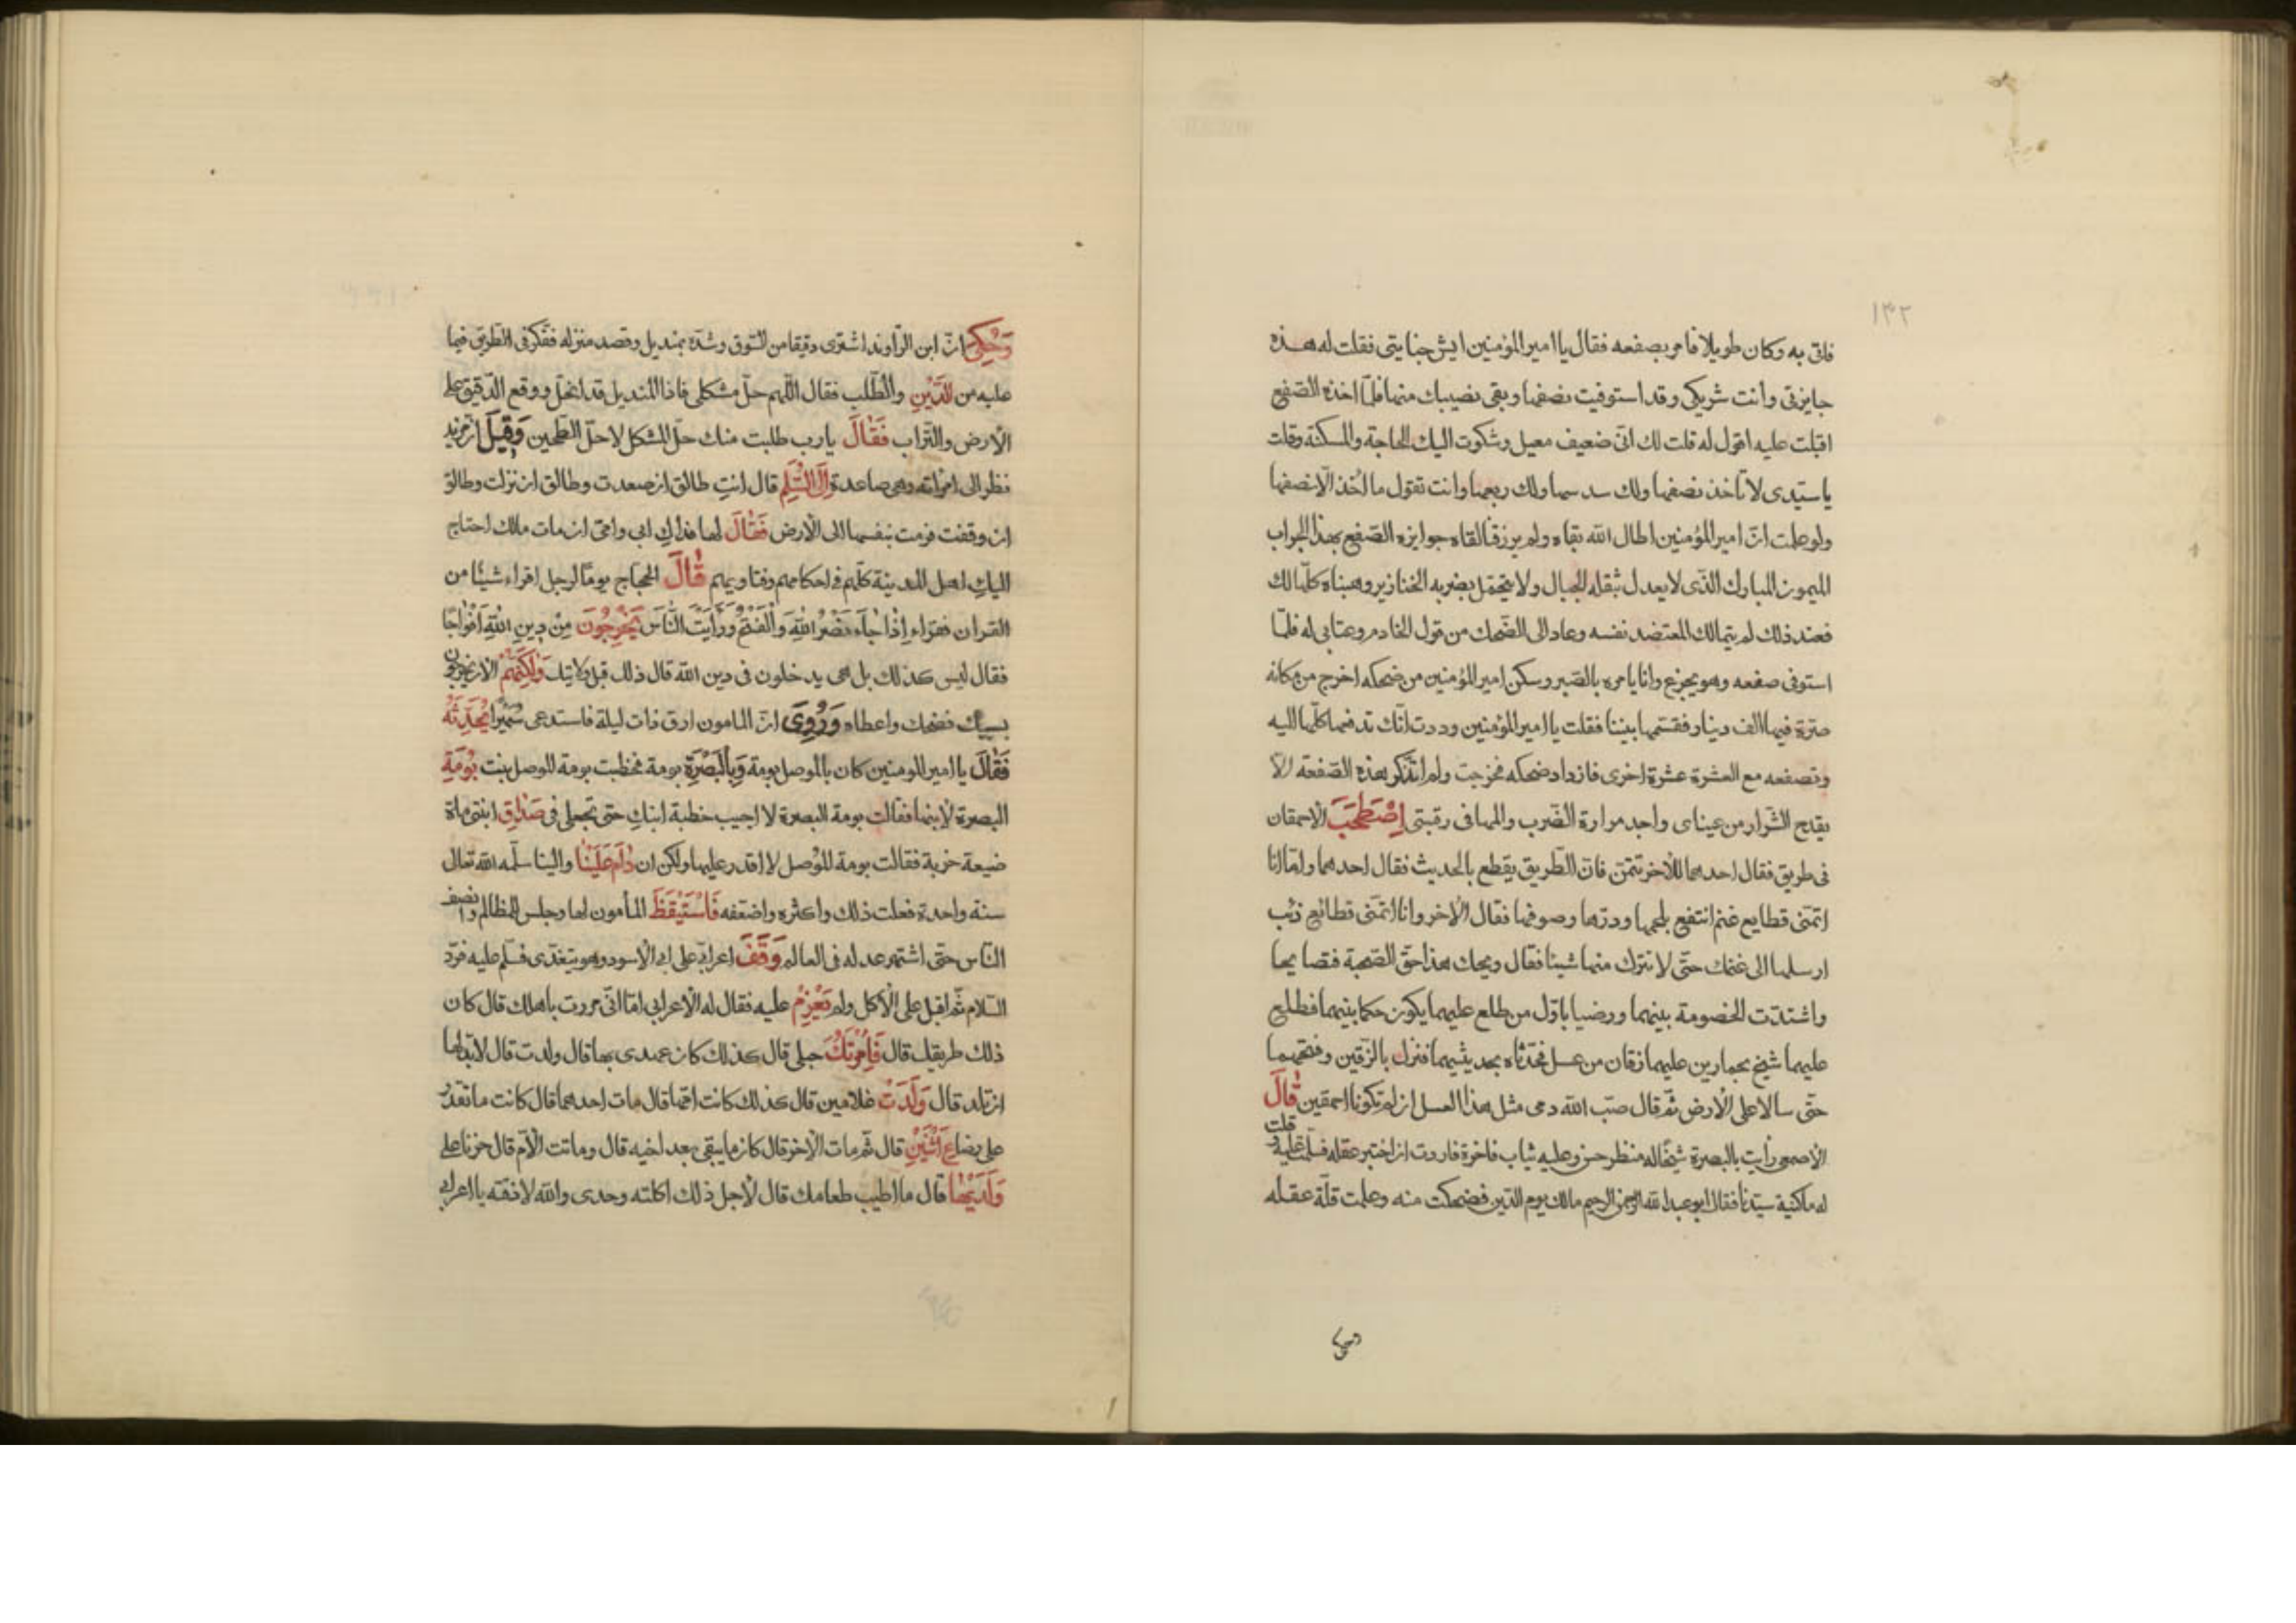 ١٣٢
فاتى به وكان طويلا فامر بصفعه فقال يا امير المؤمنين ايش جنايتى فقلت له هذه
جايزتى وانت شريكى وقد استوفيت نصفها وبقى نصيبك منها فلمّا اخذه الصّفع
اقبلت عليه اقول له قلت لك انّى ضعيف معيل وشكوت اليك الحاجة والمسكنة وقلت
يا سيّدى لا تأخذ نصفها ولك سدسها ولك ربعها وانت تقول ما اخذ الّا نصفها
ولو علمت انّ امير المؤمنين اطال الله بقاه ولم يرزقنا لقاه جوايزه الصّفع بهذا الجراب
الميمون المبارك الّذى لا يعدل ثقله الجبال ولا يتحمّل بضربه الخنازير وهبناه كلّها لك
فعند ذلك لم يتمالك المعتضد نفسه وعاد الى الضّحك من قول الخادم وعتابى له فلمّا
استوفى صفعه وهو يجزع وانا يامره بالصّبر وسكن امير المؤمنين من ضحكه اخرج من مكانه
صرّة فيها الف دينار فقسّمها بيننا فقلت يا امير المؤمنين وددت انّك تدفعها كلّها اليه
وتصفعه مع العشرة عشرة اخرى فازداد ضحكه فخرجت ولم اتذكر بهذه الصّفعة الّا
يقدح الشّرار من عيناى واجد مرارة الضّرب والمها فى رقبتى اِصْطَحَبَ الاحمقان
فى طريق فقال احدهما للاخر تتمنّ فانّ الطّريق يقطع بالحديث فقال احدهما وامّا انا
اتمنّى قطايع غنم انتفع بلحمها ودرّها وصوفها فقال الاخر وانا اتمنّى قطائع ذئب
ارسلها الى غنمك حتّى لا تترك منها شيئا فقال ويحك هذا حقّ الصّحبة فتصايحا
واشتدّت الخصومة بينهما ورضيا باوّل من طلع عليهما يكون حكما بينهما فطلع
عليهما شيخ بحمارين عليهما زقان من عسل فحدّثاه بحديثهما فنزل بالزّقين وفتحهما
حتّى سالا على الارض ثمّ قال صبّ الله دمى مثل هذا العسل ان لم تكونا احمقين قَالَ
الاصمعى رأيت بالبصرة شيخا له منظر حسن وعليه ثياب فاخرة فاردت ان اختبر عقله فسلّمت عليه وقلت
له ما كنية سيّدنا فقال ابو عبد الله الرحمن الرحيم مالك يوم الدّين فضحكت منه وعلمت قلّة عقله
وَحُكِىَ انّ ابن الرّاوند اشترى دقيقا من السّوق وشدّه بمنديل وقصد منزله ففكّر فى الطّريق فيما
عليه من الدَّيْنِ والطّلب فقال اللّهم حلّ مشكلى فاذا المنديل قد انحلّ ووقع الدّقيق على
الارض والتّراب فَقَالَ يا رب طلبت منك حلّ المشكل لا حلّ الطّحين وَقِيلَ
نظر الى امراته وهى صاعدة اِلَى السُّلَّمِ قال انتِ طالق ان صعدت وطالق ان نزلت وطالق
ان وقفت فرمت بنفسها الى الارض فَقَالَ لها فداكِ ابى وامّى ان مات مالك احتاج
اليكِ اهل المدينة كلّهم فى احكامهم وفتاويهم قَالَ الحجّاج يوما لرجل اقراء شيئا من
القران فقراء اِذَا جَاءَ نَصْرُ اللهِ وَالْفَتْحُ وَرَأَيْتَ النَّاسَ يَخْرُجُونَ مِنْ دِينِ اللهِ اَفْوَاجًا
فقال ليس كذلك بل هى يدخلون فى دين الله قال ذلك قبل ولايتك وَلٰكِنَّهُمْ الان يخرجون
بسببك فضحك واعطاه وَرُوِىَ انّ المامون ارق ذات ليلة فاستدعى سُمَيْرًا يُحَدِّثُهُ
فَقَالَ يا امير المومنين كان بالموصل بومة وَبِالْبَصْرَةِ بومة فخطبت بومة الموصل بنت بُومَةِ
البصرة لابنها فقالت بومة البصرة لا اجيب خطبة ابنك حتى تجعلى فى صَدَاقِ ابنتى ماة
ضيعة خربة فقالت بومة الموصل لا اقدر عليها ولكن ان دَامَ عَلَيْنَا والينا سلّمه الله تعالى
سنة واحدة فعلت ذلك واكثره واضعفه فَاسْتَيْقَظَ المأمون لها وجلس للمظالم وانصف
النّاس حتى اشتهر عدله فى العالم وَقَفَ اعرابى على ابى الاسود وهو يتغدّى فسلّم عليه فردّ
السّلام ثمّ اقبل على الاكل ولم يَعْزِمْ عليه فقال له الاعرابى امّا انّى مررت باهلك قال كان
ذلك طريقك قال فَاِمْرَتُكَ حبلى قال كذلك كان عهدى بها قال ولدت قال لا بدّ لها
ان تلد قال وَلَدَتْ غلامين قال كذلك كانت امّها قال مات احدهما قال كانت ما تقدر
على رضاع اثْنَيْنِ قال ثم مات الاخر قال كان ما يبقى بعد اخيه قال وماتت الامّ قال حزنا على
وَلَدَيْهَا قال ما اطيب طعامك قال لاجل ذلك اكلته وحدى والله لا ذقته يا اعرابى